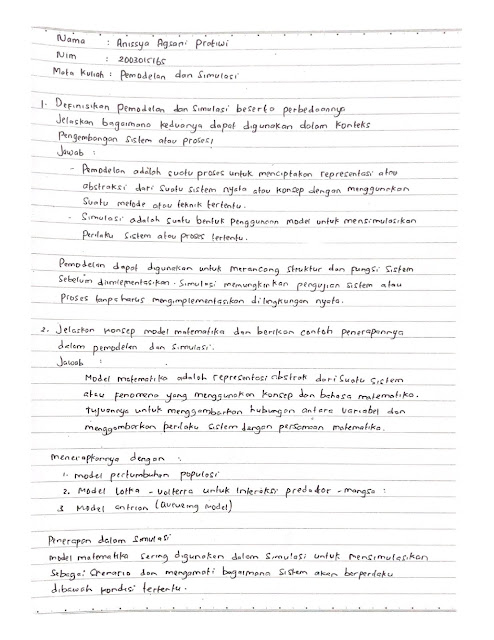 Nama : Anissya Agsani Pratiwi
Nim : 2003015165
Mata Kuliah : Pemodelan dan Simulasi
1. Definisikan Pemodelan dan Simulasi beserta perbedaannya
Jelaskan bagaimana keduanya dapat digunakan dalam konteks
Pengembangan Sistem atau proses!
Jawab :
- Pemodelan adalah suatu proses untuk menciptakan representasi atau
abstraksi dari Suatu sistem nyata atau Konsep dengan menggunakan
Suatu metode atau teknik tertentu.
- Simulasi adalah suatu bentuk penggunaan model untuk mensimulasikan
Perilaku sistem atau proses tertentu.
Pemodelan dapat digunakan untuk merancang struktur dan fungsi sistem
Sebelum diimplementasikan. Simulasi memungkinkan pengujian sistem atau
Proses tanpa harus mengimplementasikan di lingkungan nyata.
2. Jelaskan konsep model matematika dan berikan contoh penerapannya
dalam pemodelan dan Simulasi.
Jawab :
Model matematika adalah representasi abstrak dari Suatu sistem
atau fenomena yang menggunakan konsep dan bahasa matematika.
tujuannya untuk menggambarkan hubungan antara variabel dan
menggambarkan perilaku sistem dengan persamaan matematika.
menerapkannya dengan :
1. model pertumbuhan populasi
2. Model Lotka - Volterra untuk Interaksi predator - mangsa :
3 Model antrian (Queueing model)
Penerapan dalam Simulasi
model matematika sering digunakan dalam Simulasi untuk mensimulasikan
Sebagai Skenario dan mengamati bagaimana sistem akan berperilaku
dibawah kondisi tertentu.